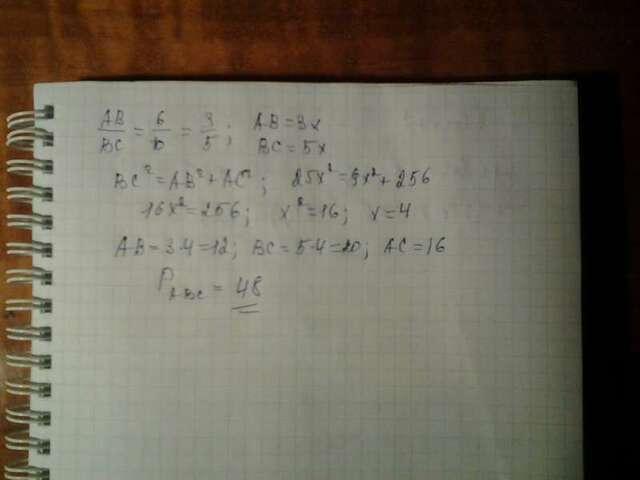 AB/BC = 6/10 = 3/5; AB=3x
BC=5x
BC²=AB²+AC²; 25x²=9x²+256
16x²=256; x²=16; x=4
AB=3·4=12; BC=5·4=20; AC=16
P_ABC = 48